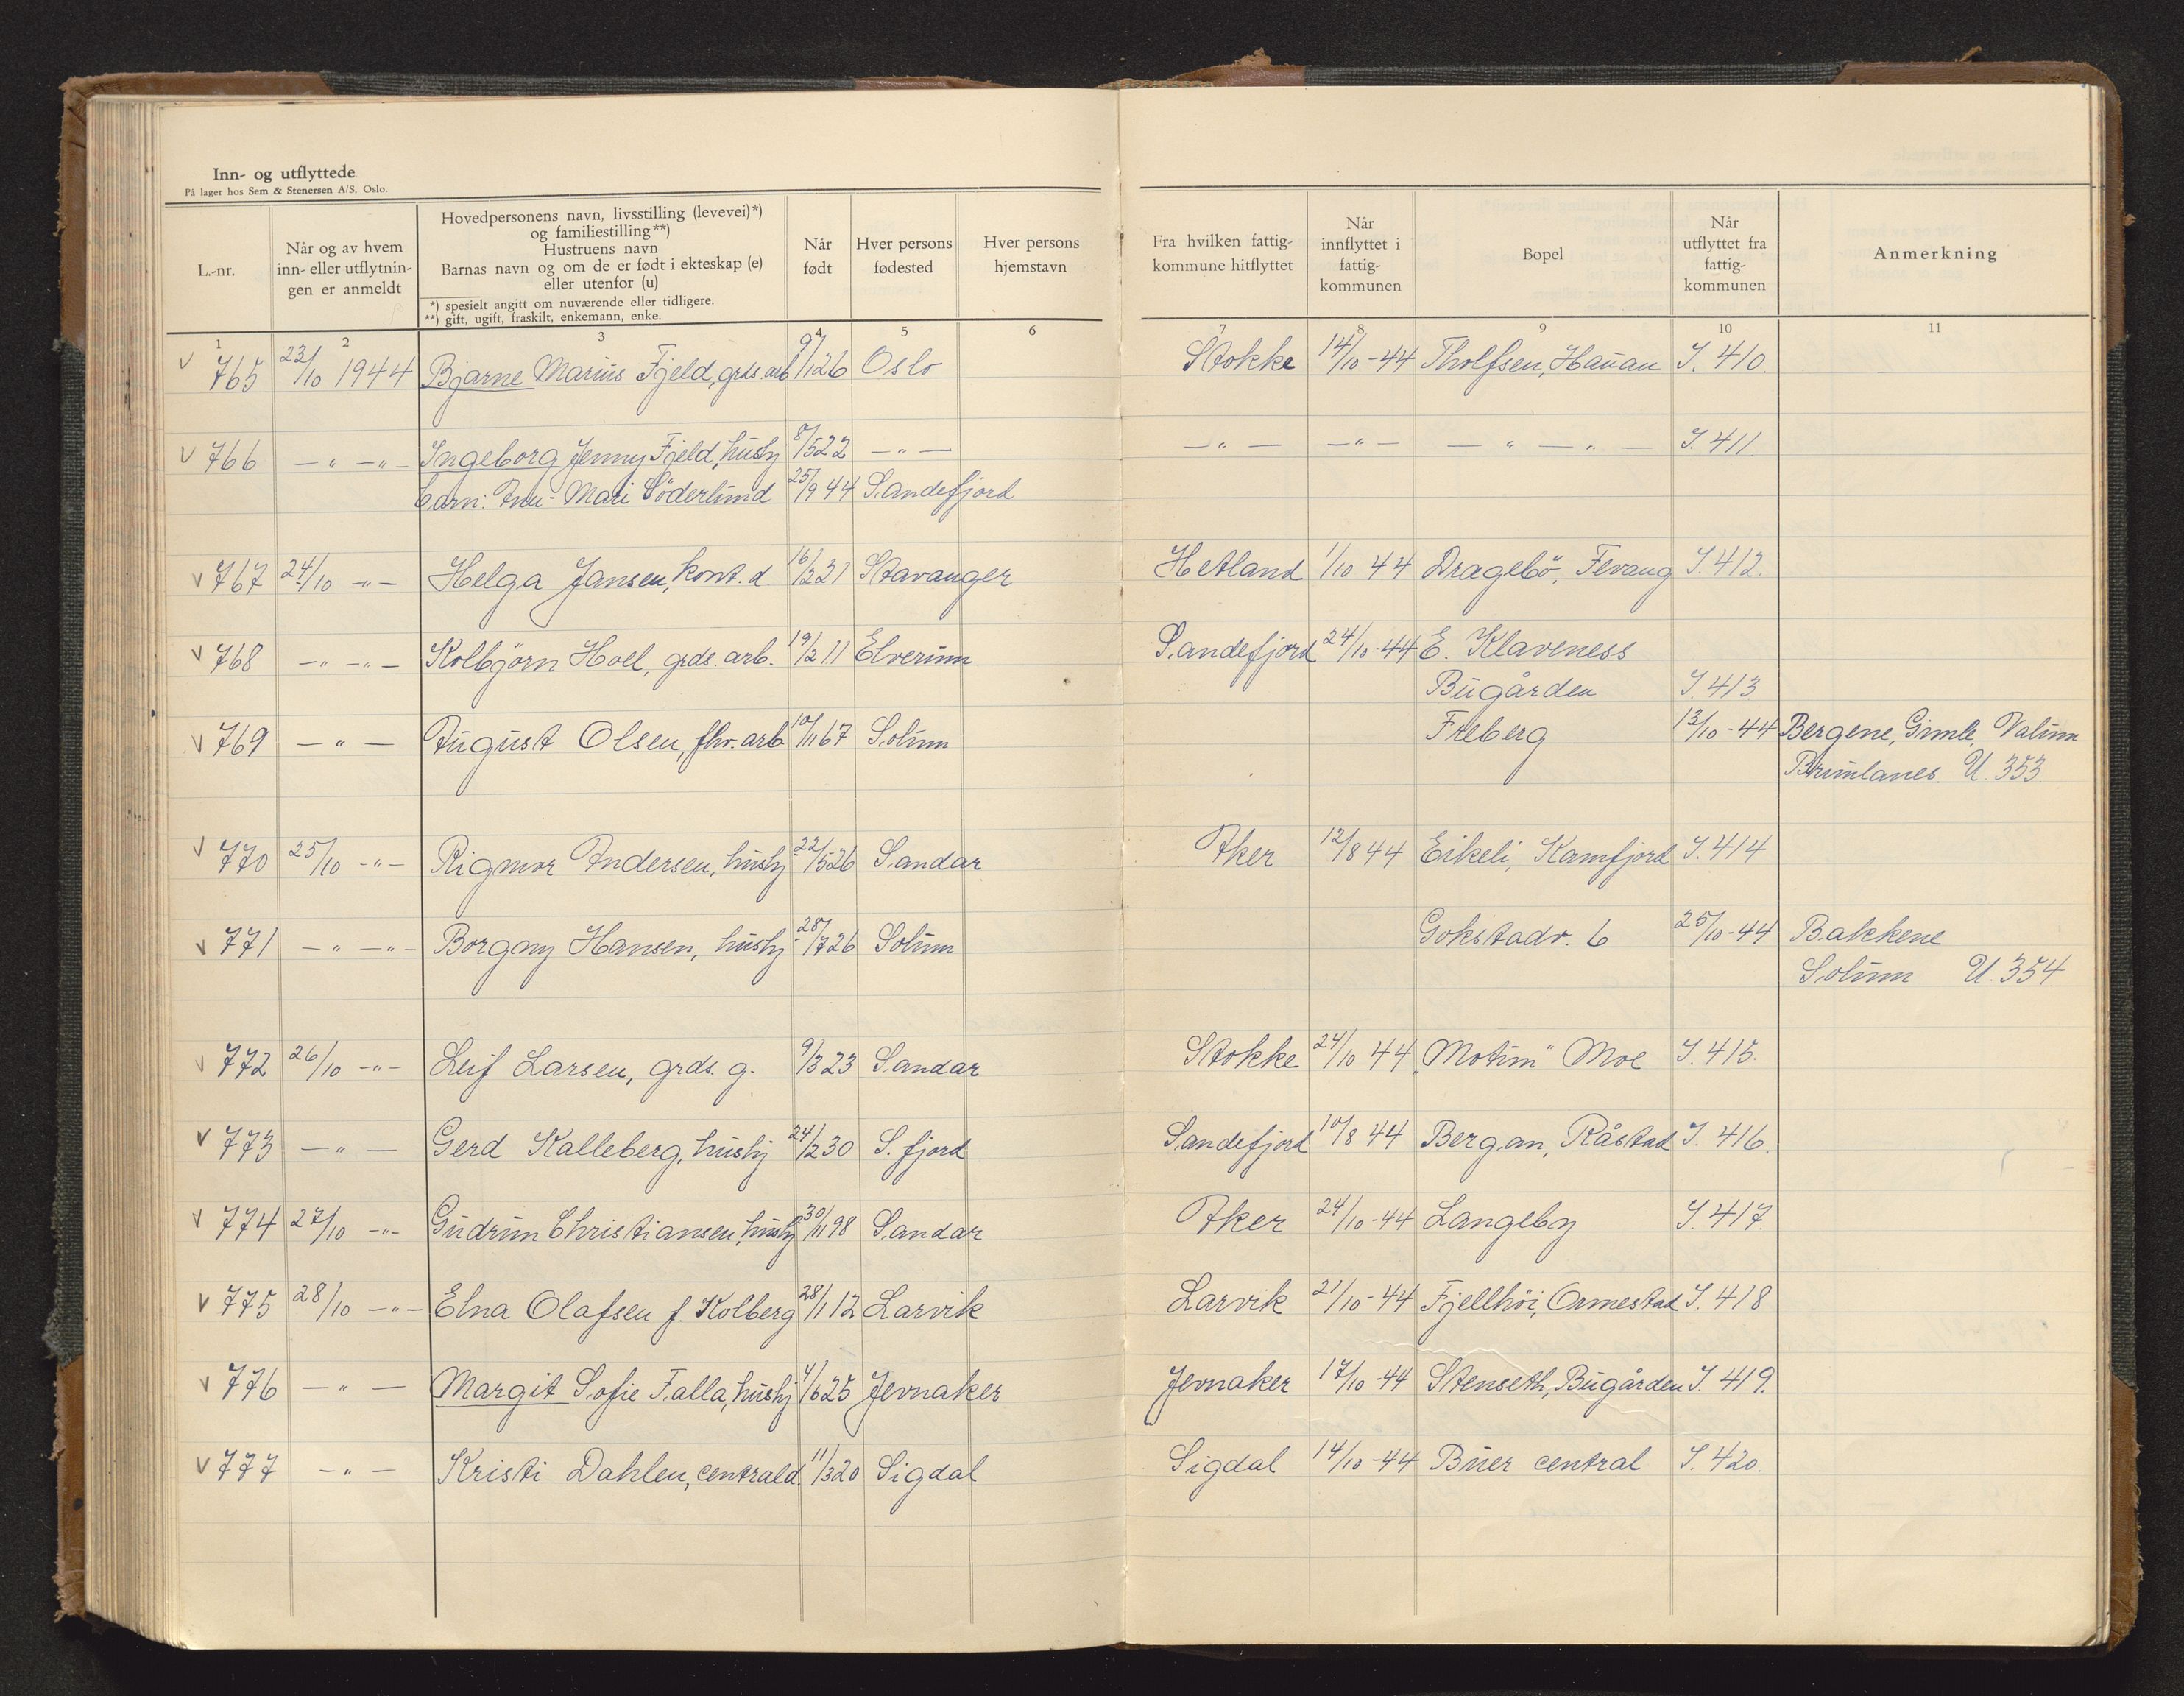 Inn- og utflyttede
På lager hos Sem & Stenersen A/S, Oslo.
L.-nr.
Når og av hvem
inn- eller utflytnin-
gen er anmeldt
Hovedpersonens navn, livsstilling (levevei)*)
og familiestilling**)
Hustruens navn
Barnas navn og om de er født i ekteskap (e)
eller utenfor (u)
*) spesielt angitt om nuværende eller tidligere.
**) gift, ugift, fraskilt, enkemann, enke.
Når
født
Hver persons
fødested
Hver persons
hjemstavn
Fra hvilken fattig-
kommune hitflyttet
Når
innflyttet i
fattig-
kommunen
Bopel
Når
utflyttet fra
fattig-
kommunen
Anmerkning
1 2 3 4 5 6 7 8 9 10 11
v 765 23/10 1944 Bjarne Marius Fjeld, grds. arb 9/1 26 Oslo Stokke 14/10-44 Tholfsen, Hauan I. 410.
v 766 —"— —"— Ingeborg Jenny Fjeld, hushj 8/5 22 —"— —"— —"— —"— —"— I. 411.
barn: Anu-Mari Söderlund 25/9 44 Sandefjord
v 767 24/10 —"— Helga Jansen, kont. d. 16/2 21 Stavanger Hetland 1/10 44 Dragebö, Fevang I. 412.
v 768 —"— —"— Kolbjörn Hoel, grds. arb. 19/2 11 Elverum Sandefjord 24/10-44 E. Klaveness
Bugården I. 413
v 769 —"— August Olsen, fhv. arb 10/11 67 Solum Freberg 13/10-44 Bergene, Gimle, Valum
Brunlanes U. 353.
v 770 25/10 —"— Rigmor Andersen, hushj 22/5 26 Sandar Aker 12/8 44 Eikeli, Kamfjord I. 414
v 771 —"— —"— Borgny Hansen, hushj 28/7 26 Solum Gokstadv. 6 25/10-44 Bakkene
Solum U. 354
v 772 26/10 —"— Leif Larsen, grds. g. 9/3 23 Sandar Stokke 24/10 44 "Motun" Moe I. 415.
v 773 —"— Gerd Kalleberg, hushj 24/2 30 S. fjord Sandefjord 10/8 44 Bergan, Råstad I. 416.
v 774 27/10 —"— Gudrun Christiansen, hushj 30/11 98 Sandar Aker 24/10-44 Langeby I. 417.
v 775 28/10 —"— Elna Olafsen f. Kolberg 28/1 12 Larvik Larvik 21/10-44 Fjellhöi, Ormestad I. 418
v 776 —"— Margit Sofie Falla, hushj 4/6 25 Jevnaker Jevnaker 17/10-44 Stenseth, Bugården I. 419.
v 777 —"— Kristi Dahlen, centrald. 11/3 20 Sigdal Sigdal 14/10-44 Buer central I. 420.